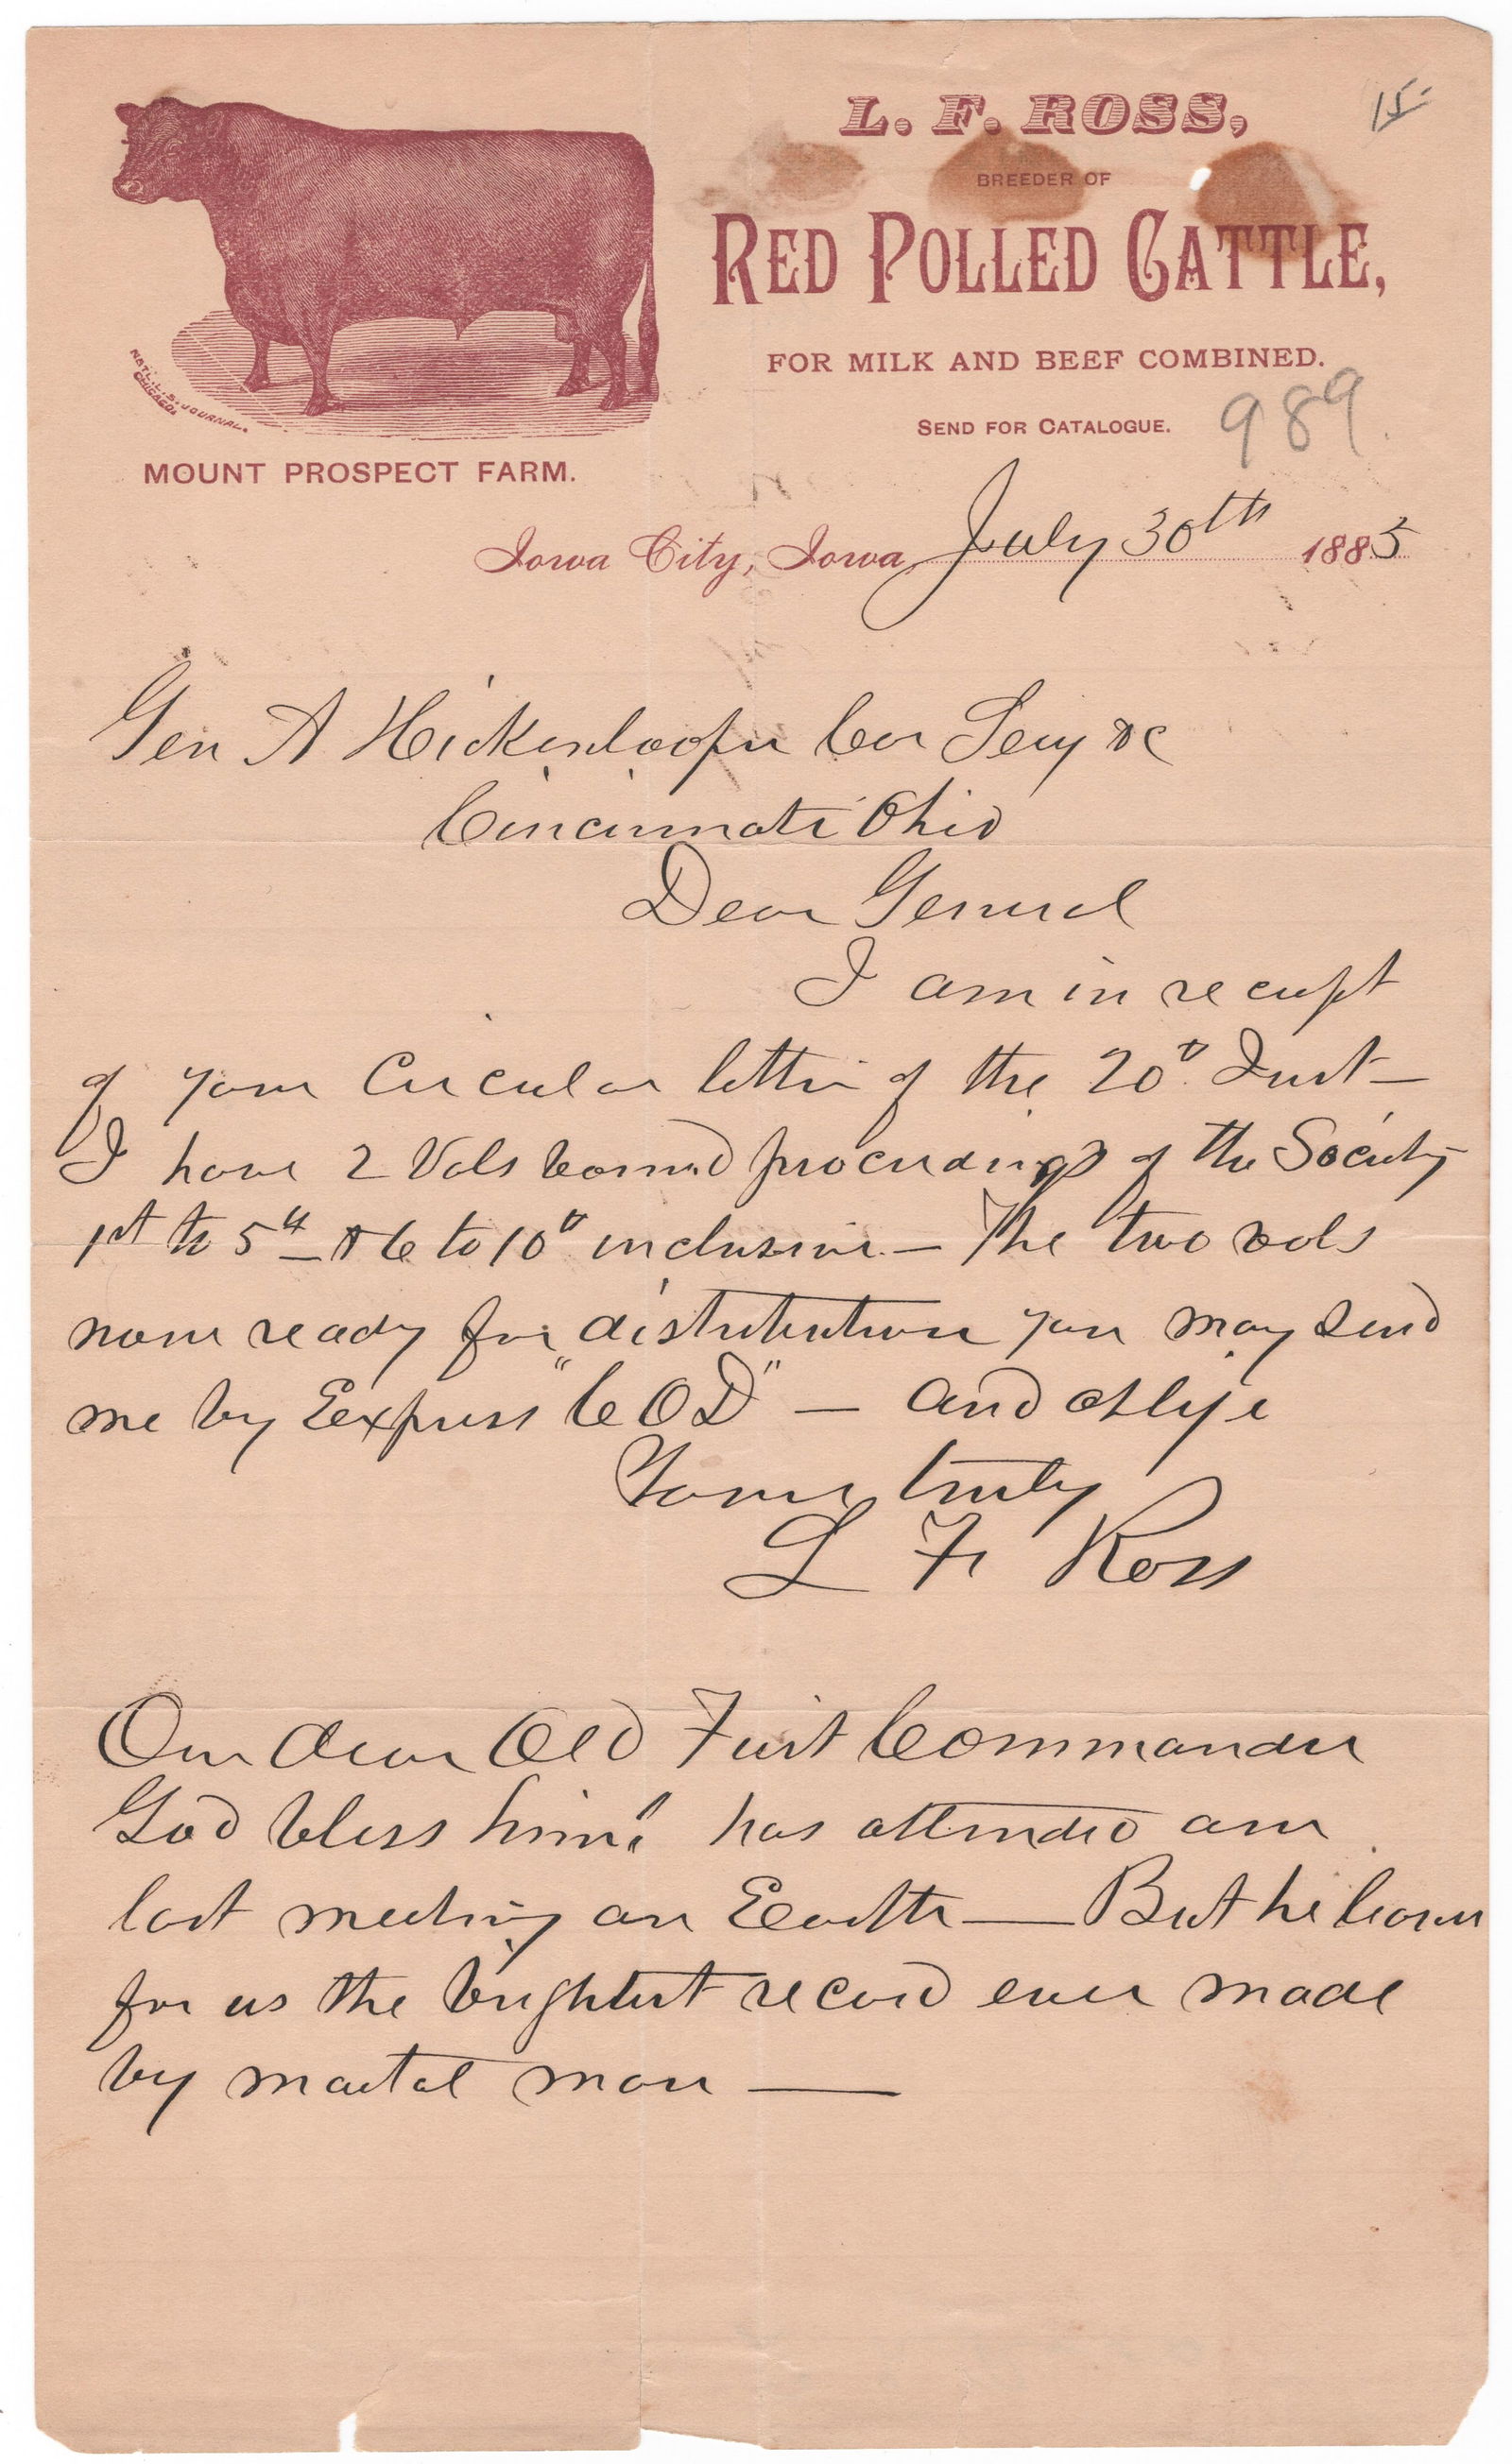 L. F. ROSS,
15-
BREEDER OF
RED POLLED CATTLE,
FOR MILK AND BEEF COMBINED.
SEND FOR CATALOGUE.
989.
NAT'L. L. S. JOURNAL.
CHICAGO.
MOUNT PROSPECT FARM.
Iowa City, Iowa, July 30th 1885
Gen A Hickenlooper Cor Secy &c
Cincinnati Ohio
Dear General
I am in receipt
of your Circular letter of the 20th Inst—
I have 2 Vols bound proceedings of the Society
1st to 5th — & 6 to 10th inclusive — The two vols
now ready for distribution you may send
me by Express "COD" — and oblige
Yours truly
L F Ross
Our dear Old First Commander
God bless him! has attended our
last meeting on Earth — But he leaves
for us the brightest record ever made
by mortal man —